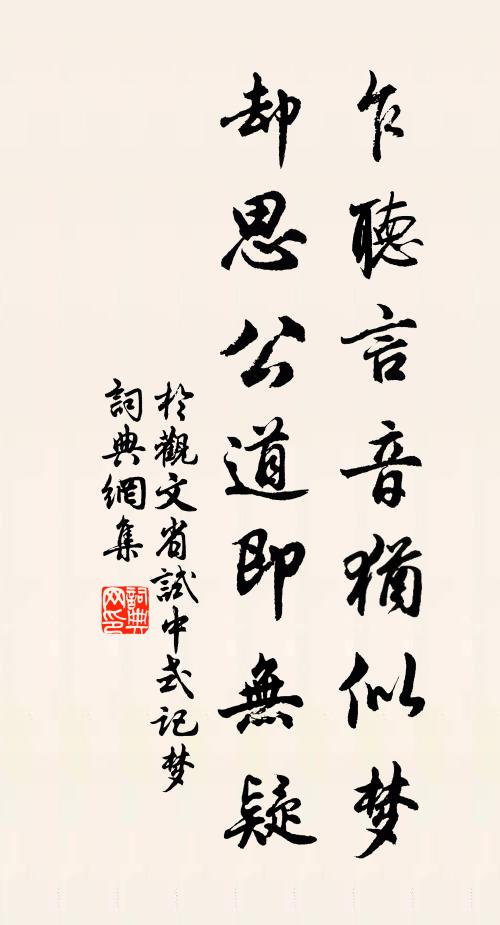 乍聽言音猶似梦
却思公道即無疑
於觀文省試中式记梦
詞典網集
詞典网印